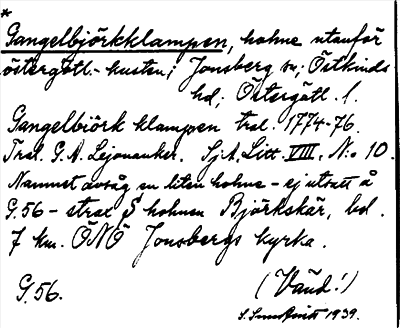 *
Gangelbjörkklampen, holme utanför
östergötl.-kusten i Jonsberg sn; Östkinds
hd, Östergötl. l.
Gangelbiörk klampen trol. 1774-76.
Trol. G. A. Lejonanker. SjA, Litt. VIII, N:o 10.
Namnet avsåg en liten holme – ej utsatt å
G. 56 – strax S holmen Björkskär, bel.
7 km. ÖNÖ Jonsbergs kyrka.
G. 56.
(Vänd!)
1939.